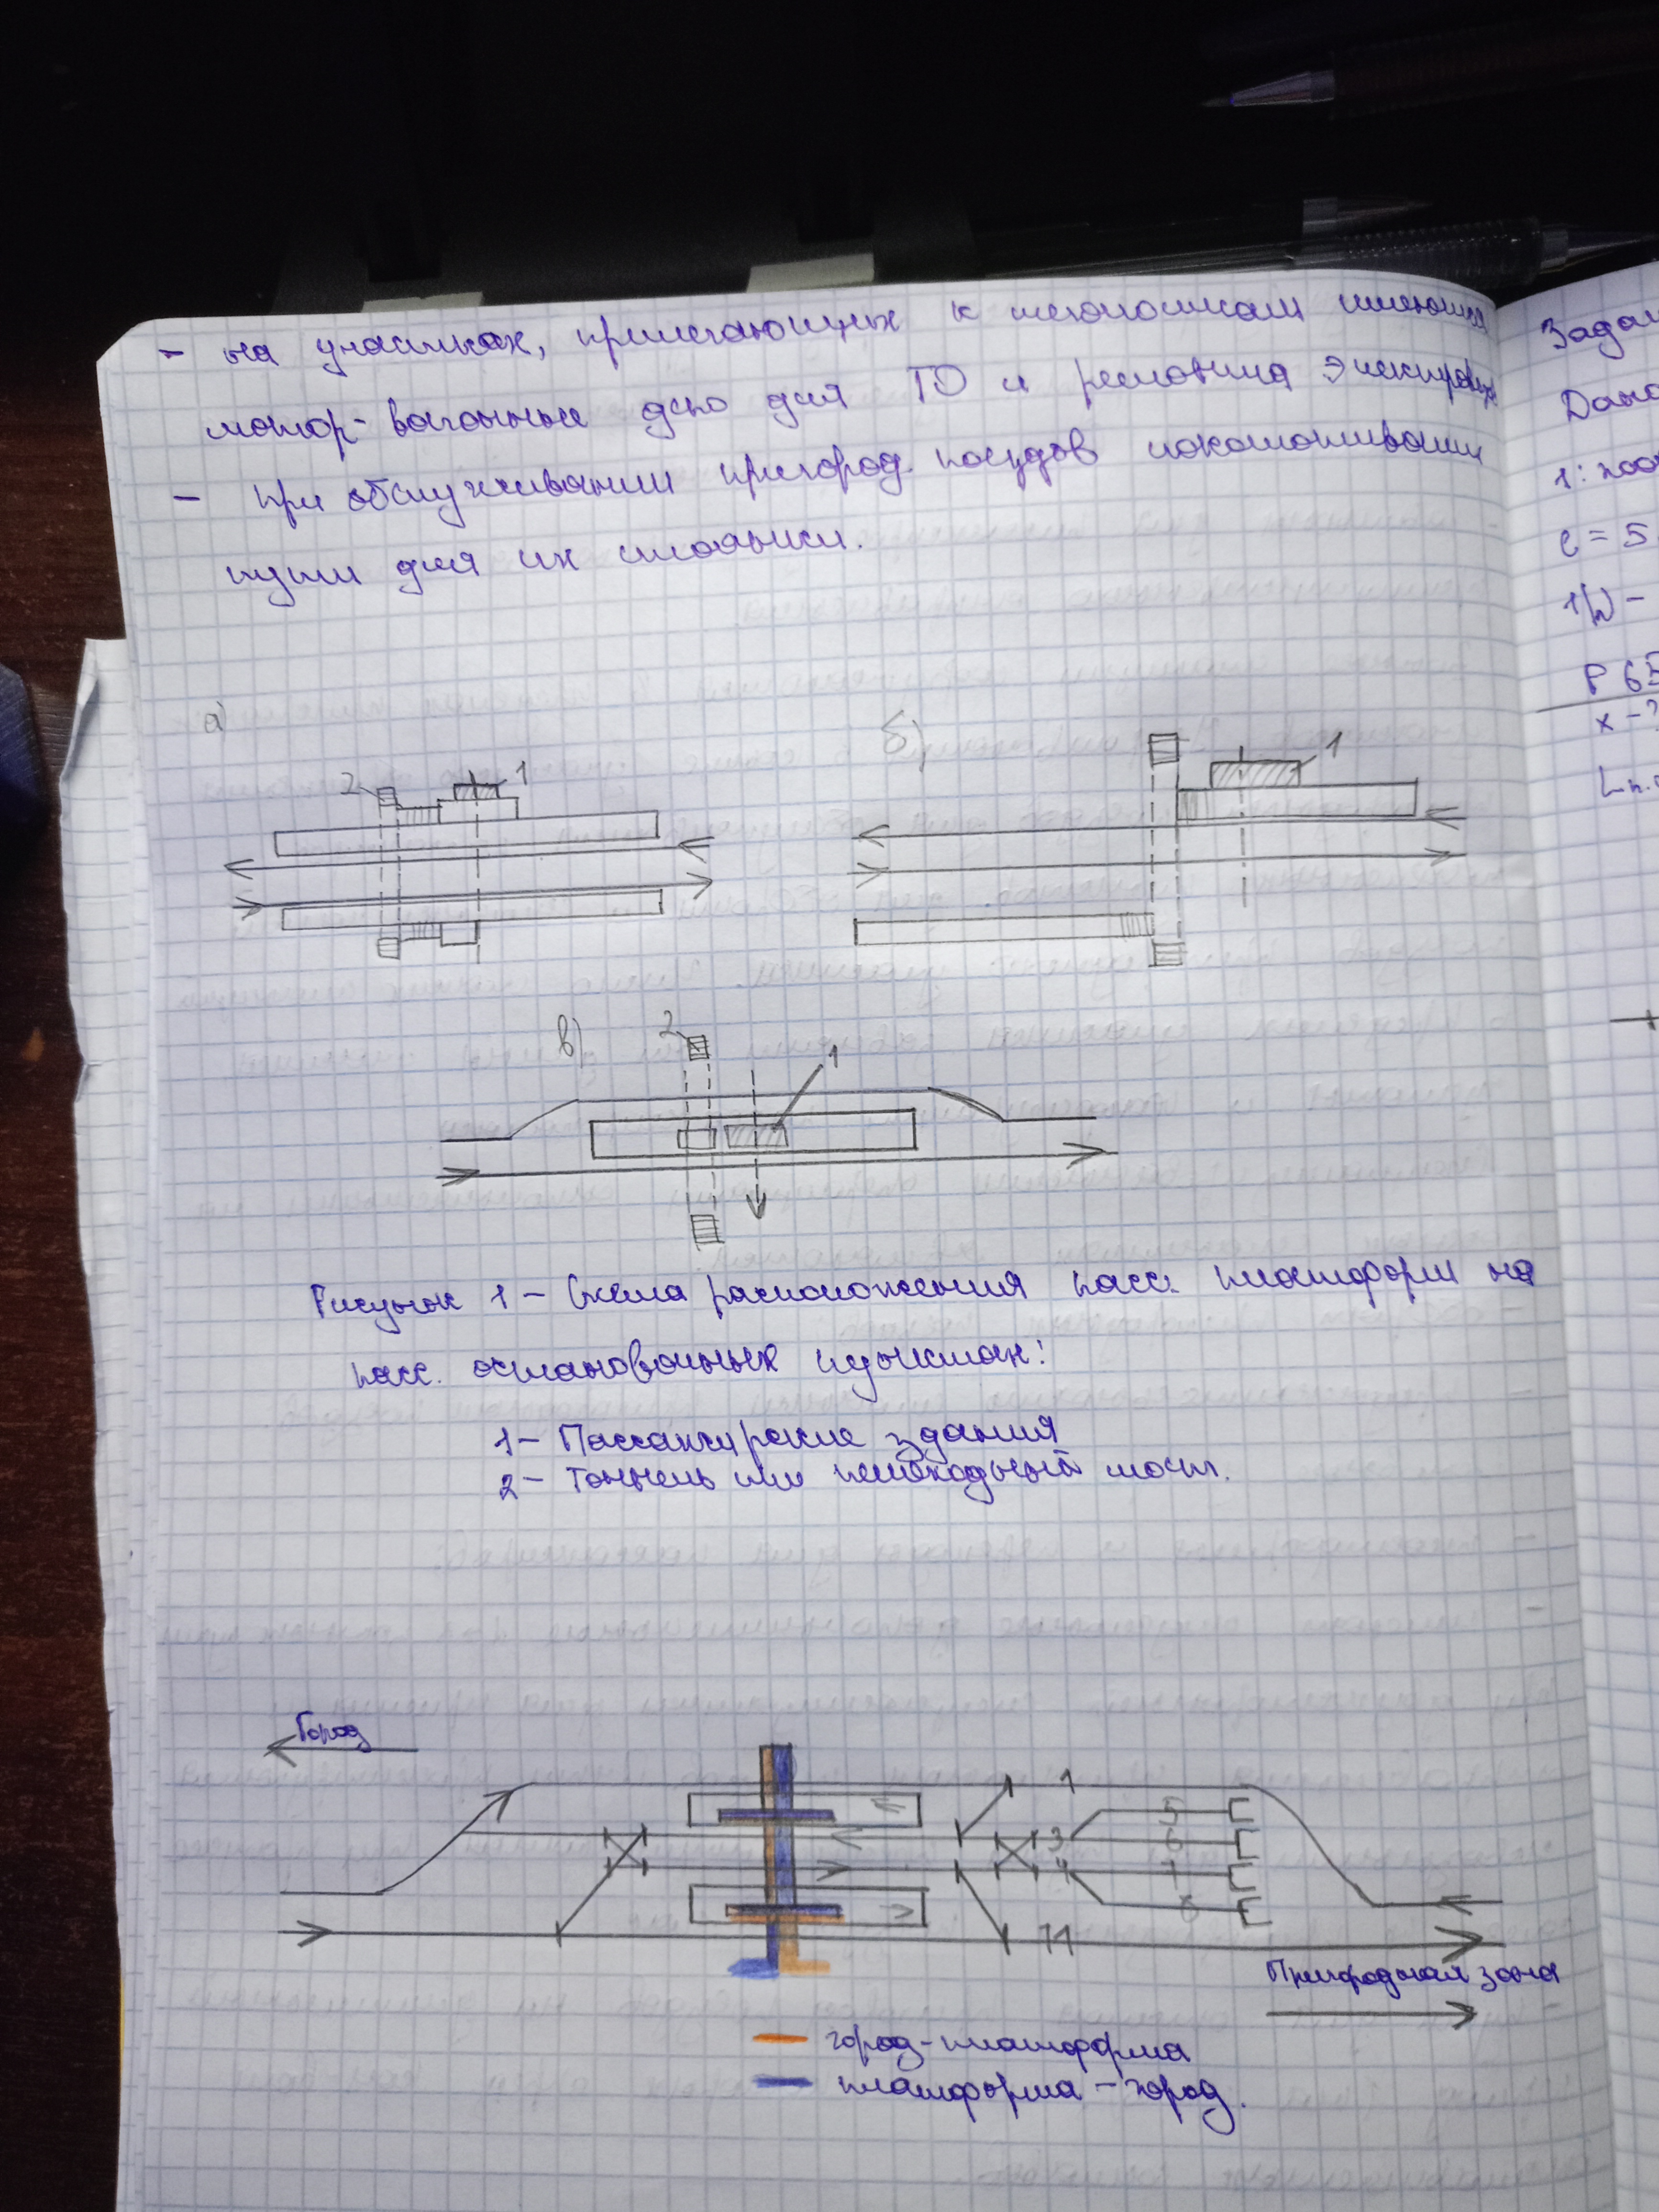 - на участках, прилегающих к мегополисам имеются
мотор-вагонные депо для ТО и ремонта электровозов
- при обслуживании пригород. поездов локомотивами
пути для их стоянки.
Задан
Дано
1:
e = 5
P 65
x - ?
а)
б)
2
1
1
в)
2
1
Рисунок 1 - Схема расположения пасс. платформ на
пасс. остановочных пунктах:
1 - Пассажирские здания
2 - Тоннель или пешеходный мост.
Город
1
5
3
6
4
7
8
11
Пригородная зона
город-платформа
платформа - город.